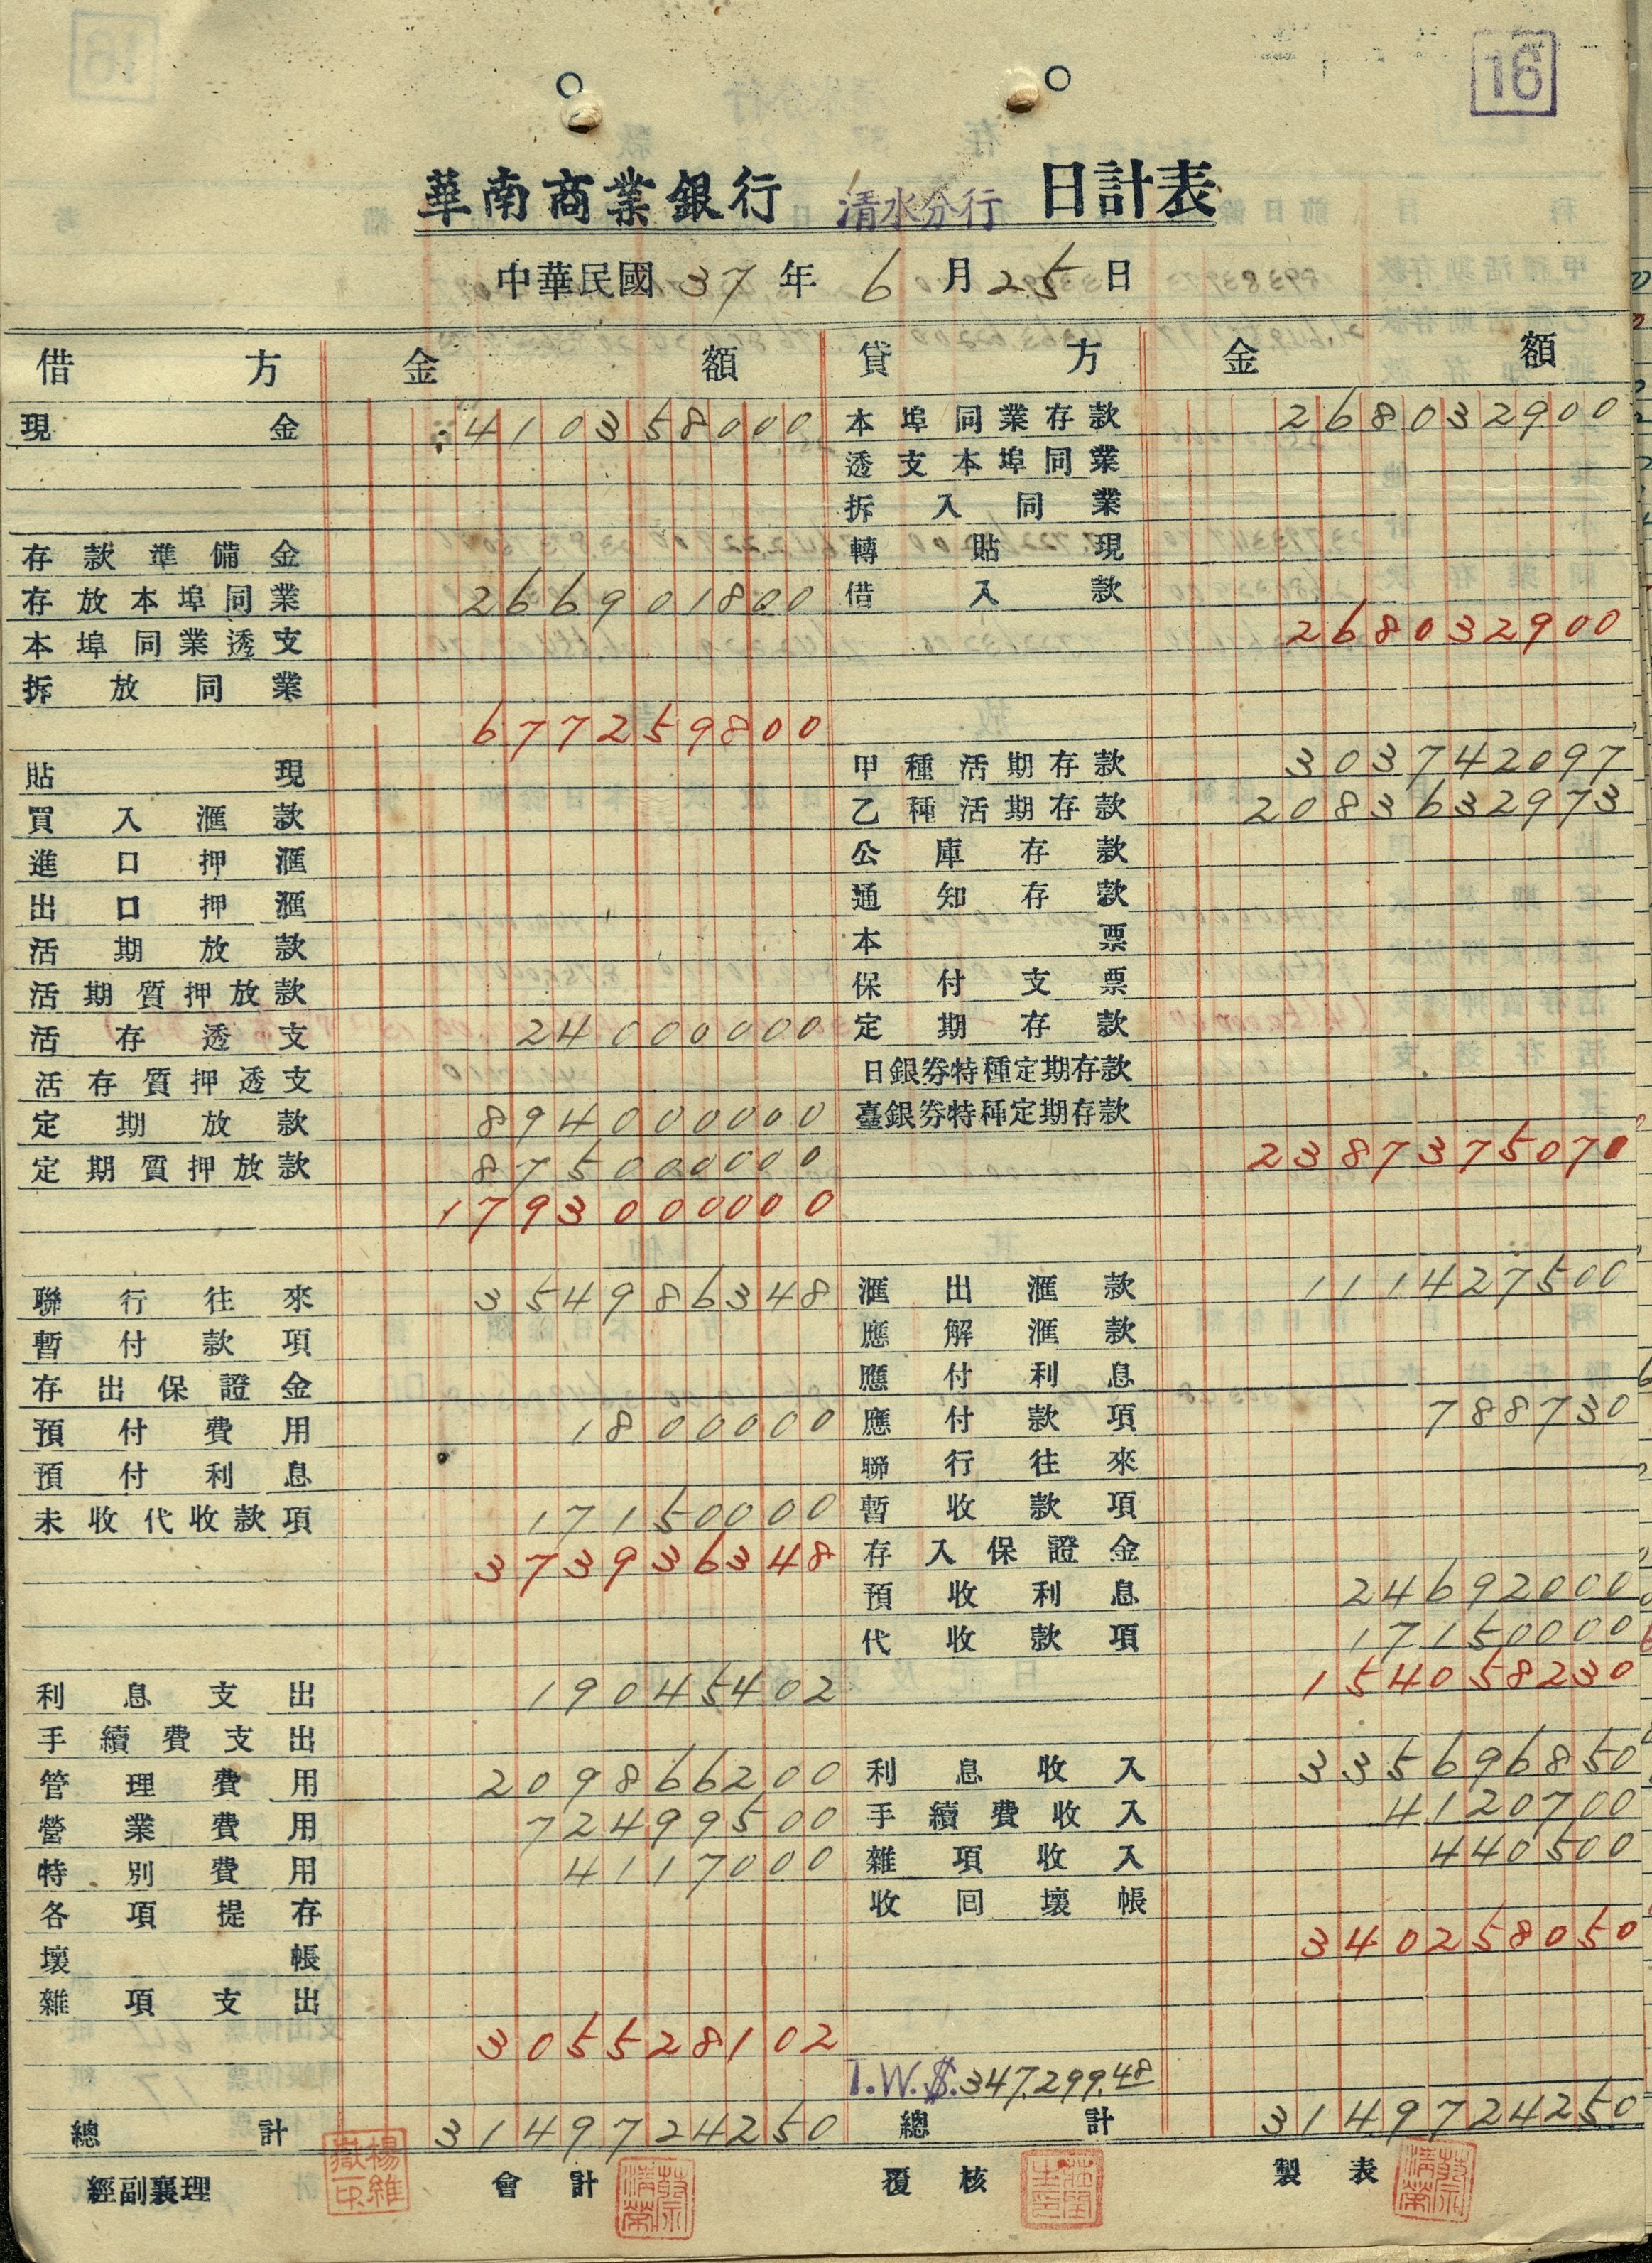 16
華南商業銀行 清水分行 日計表
中華民國 37 年 6 月 25 日
借方 金額 貸方 金額
現金 410358000 本埠同業存款 268032900
透支本埠同業
拆入同業
存款準備金 轉貼現
存放本埠同業 266901800 借入款
本埠同業透支 268032900
拆放同業
677259800
貼現 甲種活期存款 303742097
買入滙款 乙種活期存款 2083632973
進口押滙 公庫存款
出口押滙 通知存款
活期放款 本票
活期質押放款 保付支票
活存透支 24000000 定期存款
活存質押透支 日銀券特種定期存款
定期放款 894000000 臺銀券特種定期存款
定期質押放款 875000000 2387375070
1793000000
聯行往來 354986348 滙出滙款 111427500
暫付款項 應解滙款
存出保證金 應付利息
預付費用 1800000 應付款項 788730
預付利息 聯行往來
未收代收款項 17150000 暫收款項
373936348 存入保證金
預收利息 24692000
代收款項 17150000
利息支出 19045402 154058230
手續費支出
管理費用 209866200 利息收入 335696850
營業費用 72499500 手續費收入 4120700
特別費用 4117000 雜項收入 440500
各項提存 收回壞帳
壞帳 340258050
雜項支出
305528102
T.W.$.347,299.48
總計 3149724250 總計 3149724250
經副襄理 會計 覆核 製表